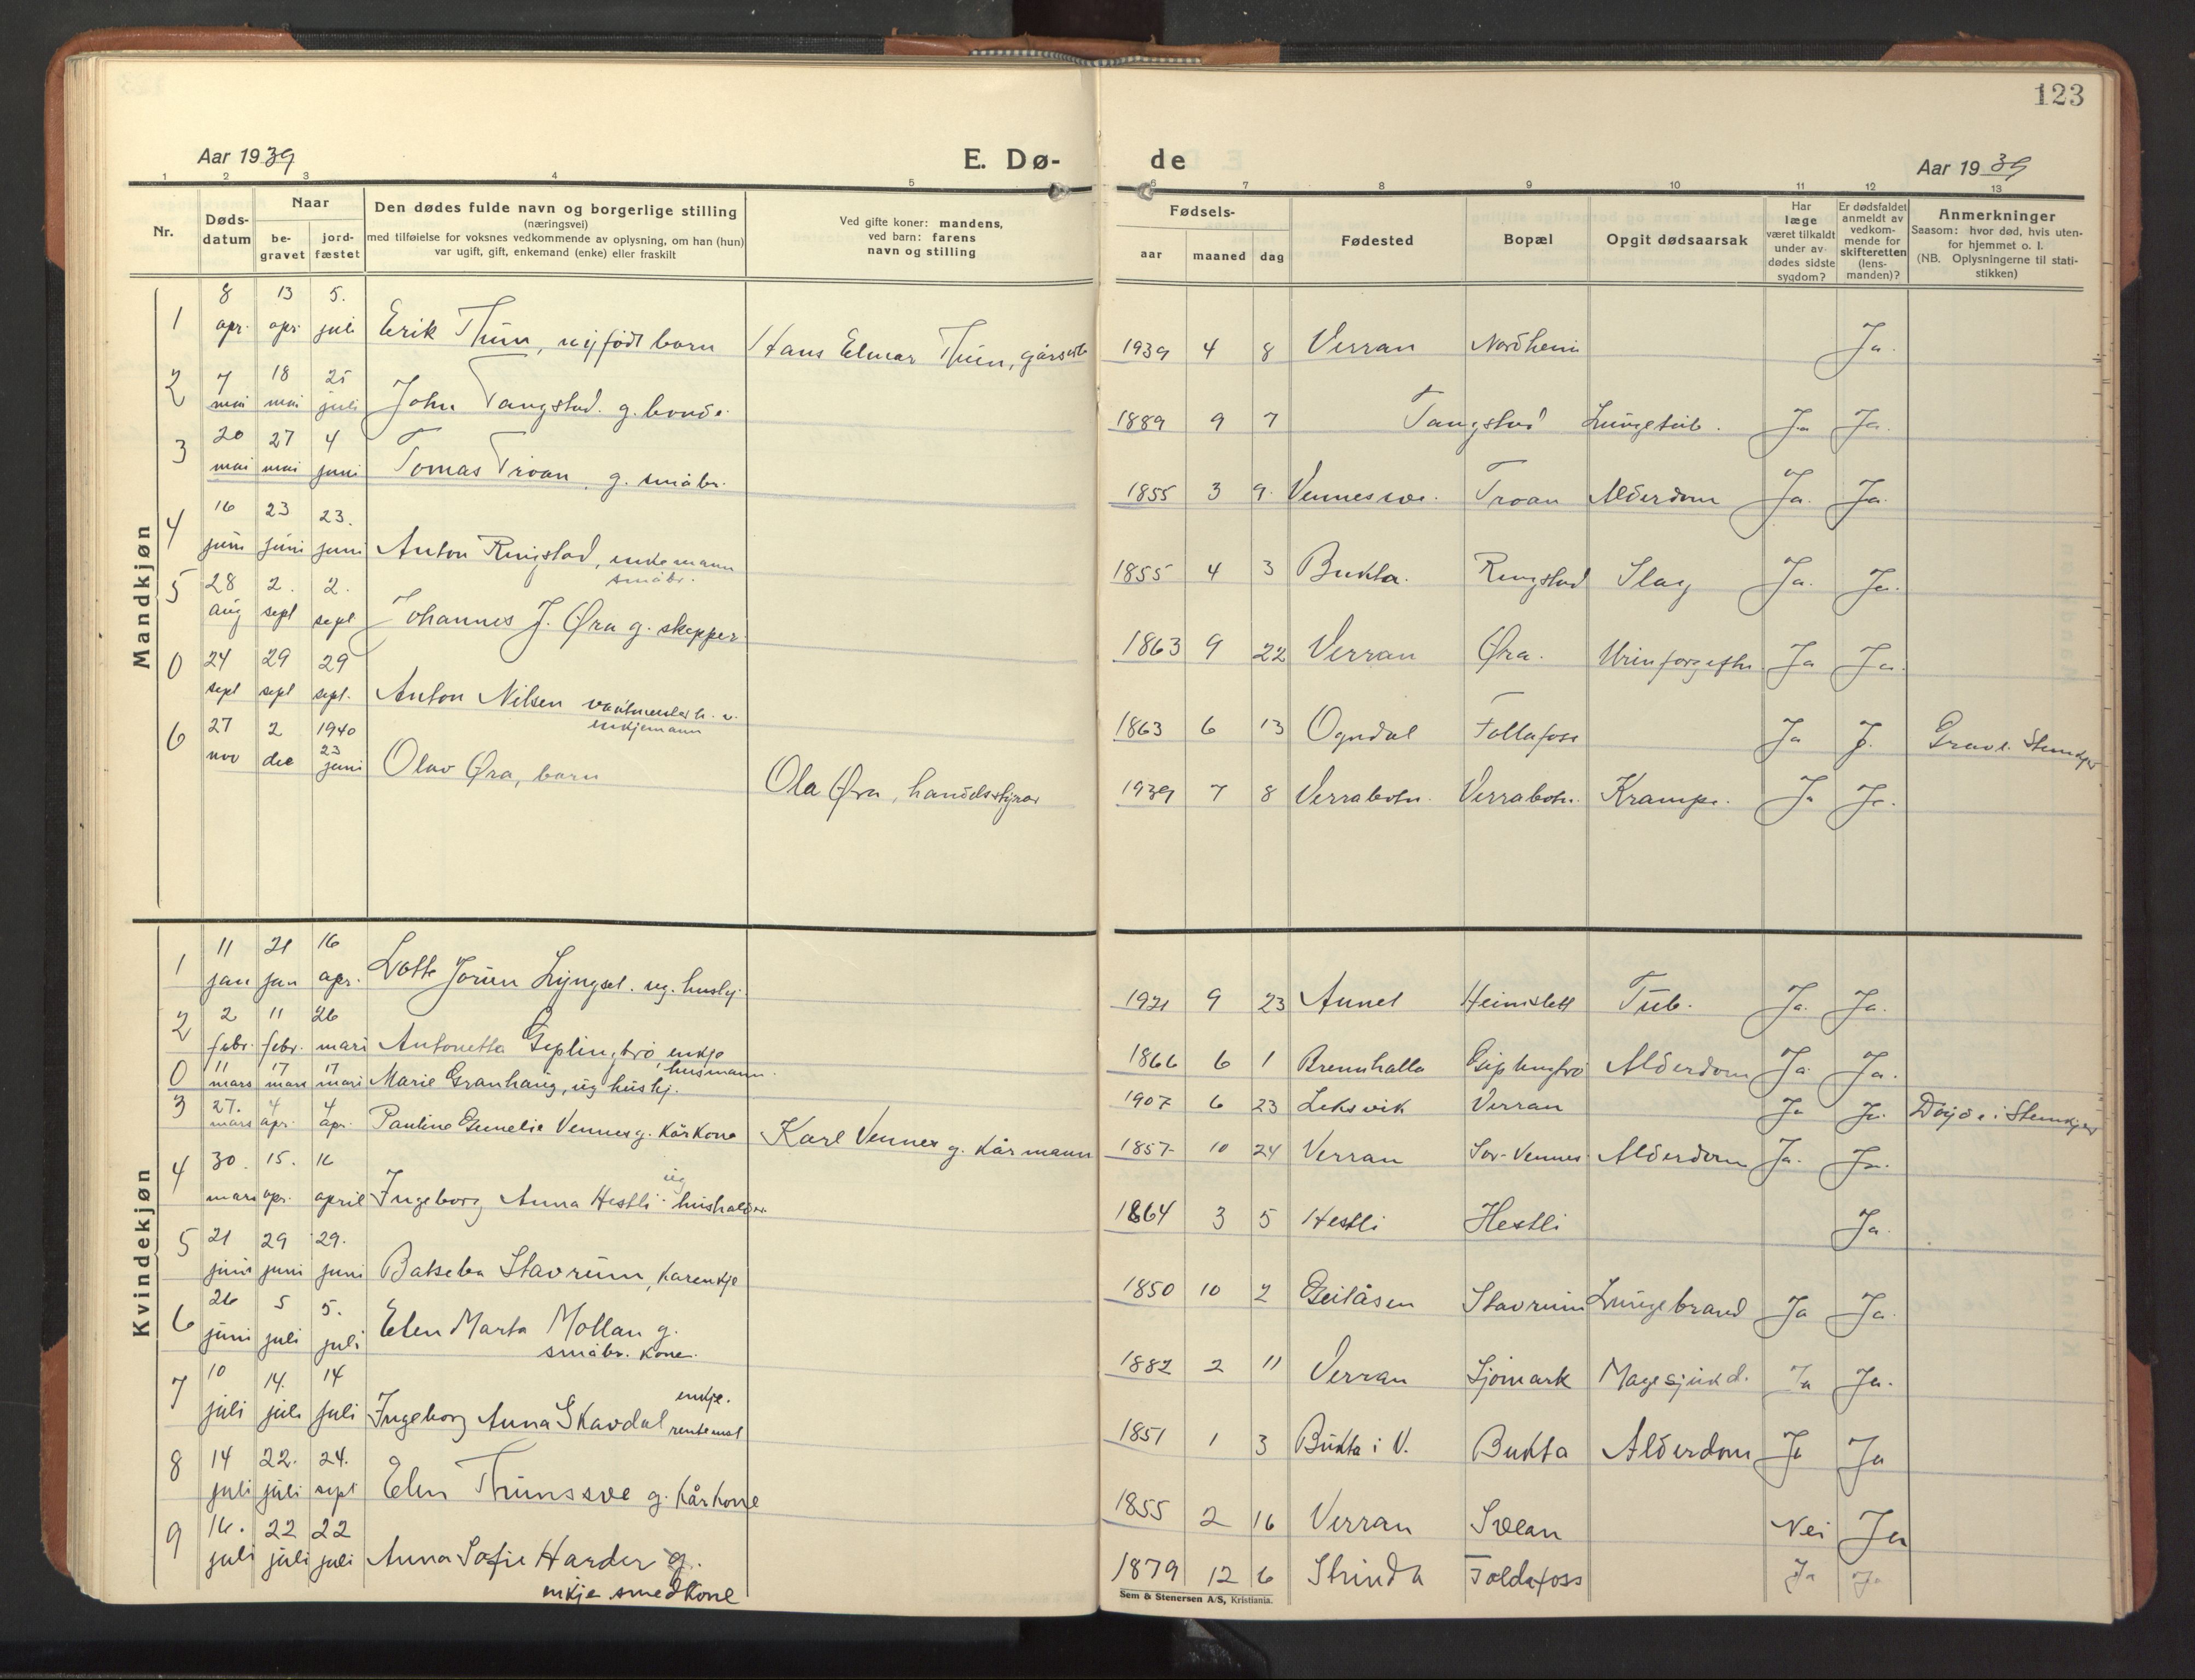 123
Aar 1939 E. Dø- de Aar 1939
1 2 3 4 5 6 7 8 9 10 11 12 13
Nr.
Døds-
datum
Naar
be-
gravet
jord-
fæstet
Den dødes fulde navn og borgerlige stilling
(næringsvei)
med tilføielse for voksnes vedkommende av oplysning, om han (hun)
var ugift, gift, enkemand (enke) eller fraskilt
Ved gifte koner: mandens,
ved barn: farens
navn og stilling
Fødsels-
aar maaned dag
Fødested
Bopæl
Opgit dødsaarsak
Har
læge
været tilkaldt
under av-
dødes sidste
sygdom?
Er dødsfaldet
anmeldt av
vedkom-
mende for
skifteretten
(lens-
manden)?
Anmerkninger
Saasom: hvor død, hvis uten-
for hjemmet o. l.
(NB. Oplysningerne til stati-
stikken)
Mandkjøn
1 8 apr. 13 apr. 5. juli Erik Thun, nyfødt barn Hans Elmar Thun, 1939 4 8 Verran Nordheim Ja.
2 7 mai 18 mai 25 juli John Tangstad. g. bonde. 1889 9 7 Tangstad Lungetub. Ja Ja.
3 20 mai 27 mai 4 juni Tomas Troan, g. småbr. 1855 3 9. Vennessve. Troan Alderdom Ja. Ja.
4 16 juni 23 juni 23. juni Anton Ringstad, enkemann
småbr. 1855 4 3 Bukta. Ringstad Slag Ja. Ja.
5 28 aug 2. sept 2. sept Johannes J. Øra g. skepper 1863 9 22 Verran Øra. Urinforgiftn. Ja Ja.
0 24 sept 29 sept 29 sept. Anton Nilsen
enkjemann 1863 6 13 Ogndal Follafoss Ja J. Gravl. Steinkjer
6 27 nov 2 dec 1940 23 juni Olav Øra, barn Ola Øra, handelsstyrar 1939 7 8 Verrabotn. Verrabotn. Krampe. Ja Ja.
Kvindekjøn
1 11 jan 21 jan 16 apr. Lotte Jorun Lyngset. ug. hushj. 1921 9 23 Aunet Heimslett Tub. Ja. Ja.
2 2 febr. 11 febr. 26 mars Antonetta Giplingbrö, enkje
husmann. 1866 6 1 Brennhalla Giplingbrö Alderdom Ja Ja.
0 11 mars 17 mars 17 mars Marie Granhaug, ug hushj. 1907 6 23 Leksvik Verran Ja Ja. Døyde i Steinkjer
3 27. mars 4 apr. 4 apr. Pauline Gunelie Vennes g. kårkone Karl Vennes g. kårmann 1857 10 24 Verran Sør-Vennes Alderdom Ja. Ja.
4 30. mars 15. apr. 16 april Ingeborg Anna Hestli ug hushalder. 1864 3 5 Hestli Hestli Ja.
5 21 juni 29 juni 29. juni Batseba Stavrum, karenkje 1850 10 2 Geitåsen Stavrum Lungebrand Ja Ja.
6 26 juni 5 juli 5. juli Elen Marta Mollan g.
småbr. kone. 1882 2 11 Verran Sjömark Magesjukd. Ja Ja.
7 10 juli 14. juli 14 juli Ingeborg Anna Skavdal enkje. 1851 1 3 Bukta i V. Bukta Alderdom Ja Ja
8 14 juli 22. juli 24. sept Elen Thunssve g. kårkone 1855 2 16 Verran Svean Nei Ja
9 16. juli 22 juli 22 juli Anna Sofie Harder g.
enkje smedkone 1879 12 6 Strinda Foldafoss Ja Ja
Sem & Stenersen A/S, Kristiania.